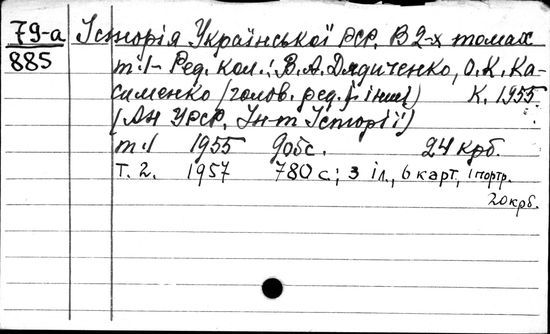 79-а Історія Української РСР. В 2-х томах
885 т.1- Ред. кол.: В.А. Дядиченко, О.К. Ка-
сименко (голов. ред.) і інші) К. 1955.
(Ан УРСР. Ін-т Історії)
т.1 1955 905с. 24 крб.
Т. 2. 1957 780 с.; 3 іл., 6 карт, 1 портр.
20 крб.